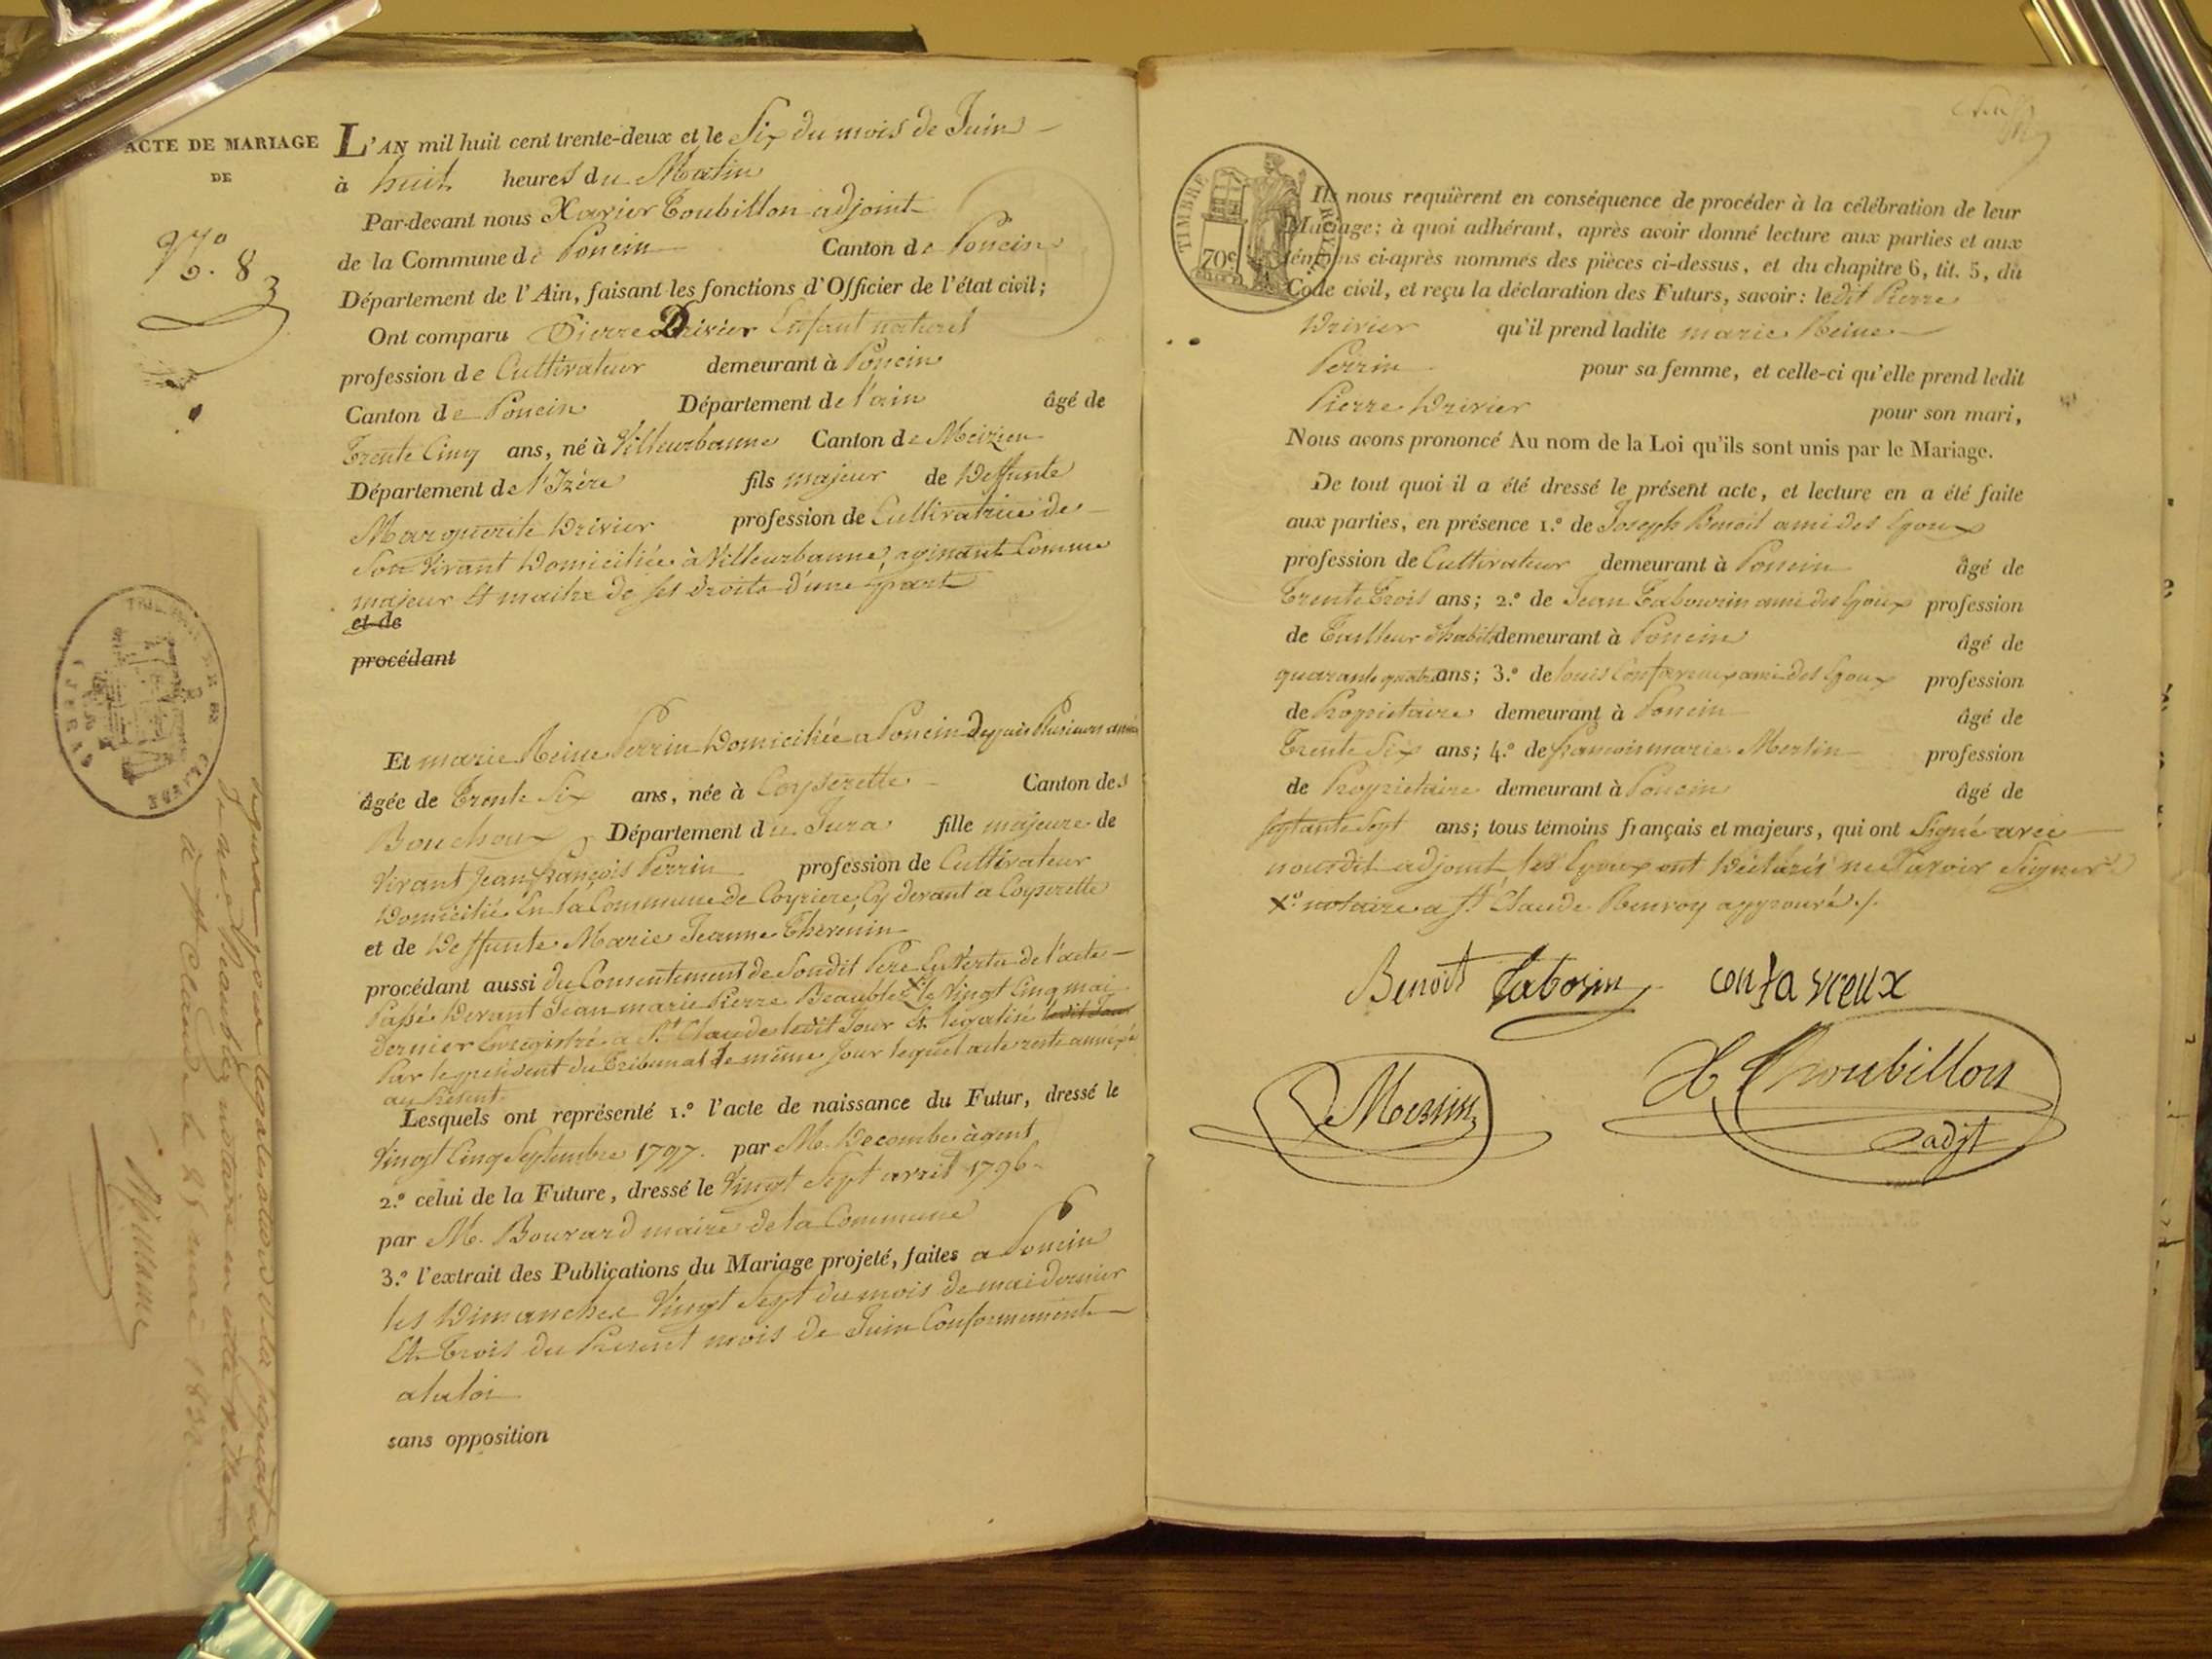 ACTE DE MARIAGE
DE
N.º 8
L'AN mil huit cent trente-deux et le Six du mois de Juin
à huit heures du Matin
Par-devant nous Xavier Toubillon adjoint
de la Commune de Poncin Canton de Poncin
Département de l'Ain, faisant les fonctions d'Officier de l'état civil;
Ont comparu Pierre Drivier Enfant naturel
profession de Cultivateur demeurant à Poncin
Canton de Poncin Département de l'ain âgé de
Trente Cinq ans, né à Villeurbanne Canton de Meizieu
Département de l'Izère fils majeur de Deffunte
Marguerite Drivier profession de Cultivatrice de
Son Vivant Domiciliée à Villeurbanne, agissant Comme
majeur Et maitre de ses droits d'une part
et de
procédant
Et marie Reine Perrin Domiciliée a Poncin depuis Plusieurs années
âgée de Trente Six ans, née à Coyserette Canton des
Bouchoux Département du Jura fille majeure de
Vivant Jean françois Perrin profession de Cultivateur
Domicilié En la Commune de Coyriere, Cy devant a Coyserette
et de Deffunte Marie Jeanne Thevenin
procédant aussi du Consentement de Soudit Pere En Vertu de l'acte
Passé Devant Jean marie Pierre Beaublez X le Vingt Cinq mai
Dernier Enregistré a St Claude ledit Jour Et légalisé ledit Jour
Par le president du Tribunal le même Jour lequel acte reste annéxé
au Présent.
Lesquels ont représenté 1.º l'acte de naissance du Futur, dressé le
Vingt Cinq Septembre 1797. par M. Decombe agent
2.º celui de la Future, dressé le Vingt Sept avril 1796
par M. Bouvard maire de la Commune
3.º l'extrait des Publications du Mariage projeté, faites a Poncin
les Dimanches Vingt Sept du mois de mai dernier
Et Trois du Present mois de Juin Conformement
a la loi
sans opposition
à St Claude le 25 mai 1832.
TIMBRE ROYAL
70c
Ils nous requièrent en conséquence de procéder à la célébration de leur
Mariage; à quoi adhérant, après avoir donné lecture aux parties et aux
témoins ci-après nommés des pièces ci-dessus, et du chapitre 6, tit. 5, du
Code civil, et reçu la déclaration des Futurs, savoir: ledit Pierre
Drivier qu'il prend ladite marie Reine
Perrin pour sa femme, et celle-ci qu'elle prend ledit
Pierre Drivier pour son mari,
Nous avons prononcé Au nom de la Loi qu'ils sont unis par le Mariage.
De tout quoi il a été dressé le présent acte, et lecture en a été faite
aux parties, en présence 1.º de Joseph Benoit ami des Epoux
profession de Cultivateur demeurant à Poncin âgé de
Trente Trois ans; 2.º de Jean Tabourin ami des Epoux profession
de Tailleur d'habits demeurant à Poncin âgé de
quarante quatre ans; 3.º de louis Confavreux ami des Epoux profession
de Propriétaire demeurant à Poncin âgé de
Trente Six ans; 4.º de francois marie Merlin profession
de Propriétaire demeurant à Poncin âgé de
Septante Sept ans; tous témoins français et majeurs, qui ont Signé avec
nousdit adjoint les Epoux ont Déclarés ne Savoir Signer
X notaire a St Claude Renvoy approuvé ./.
Benoit Taborin confavreux
Merlin X Troubillon
adjt